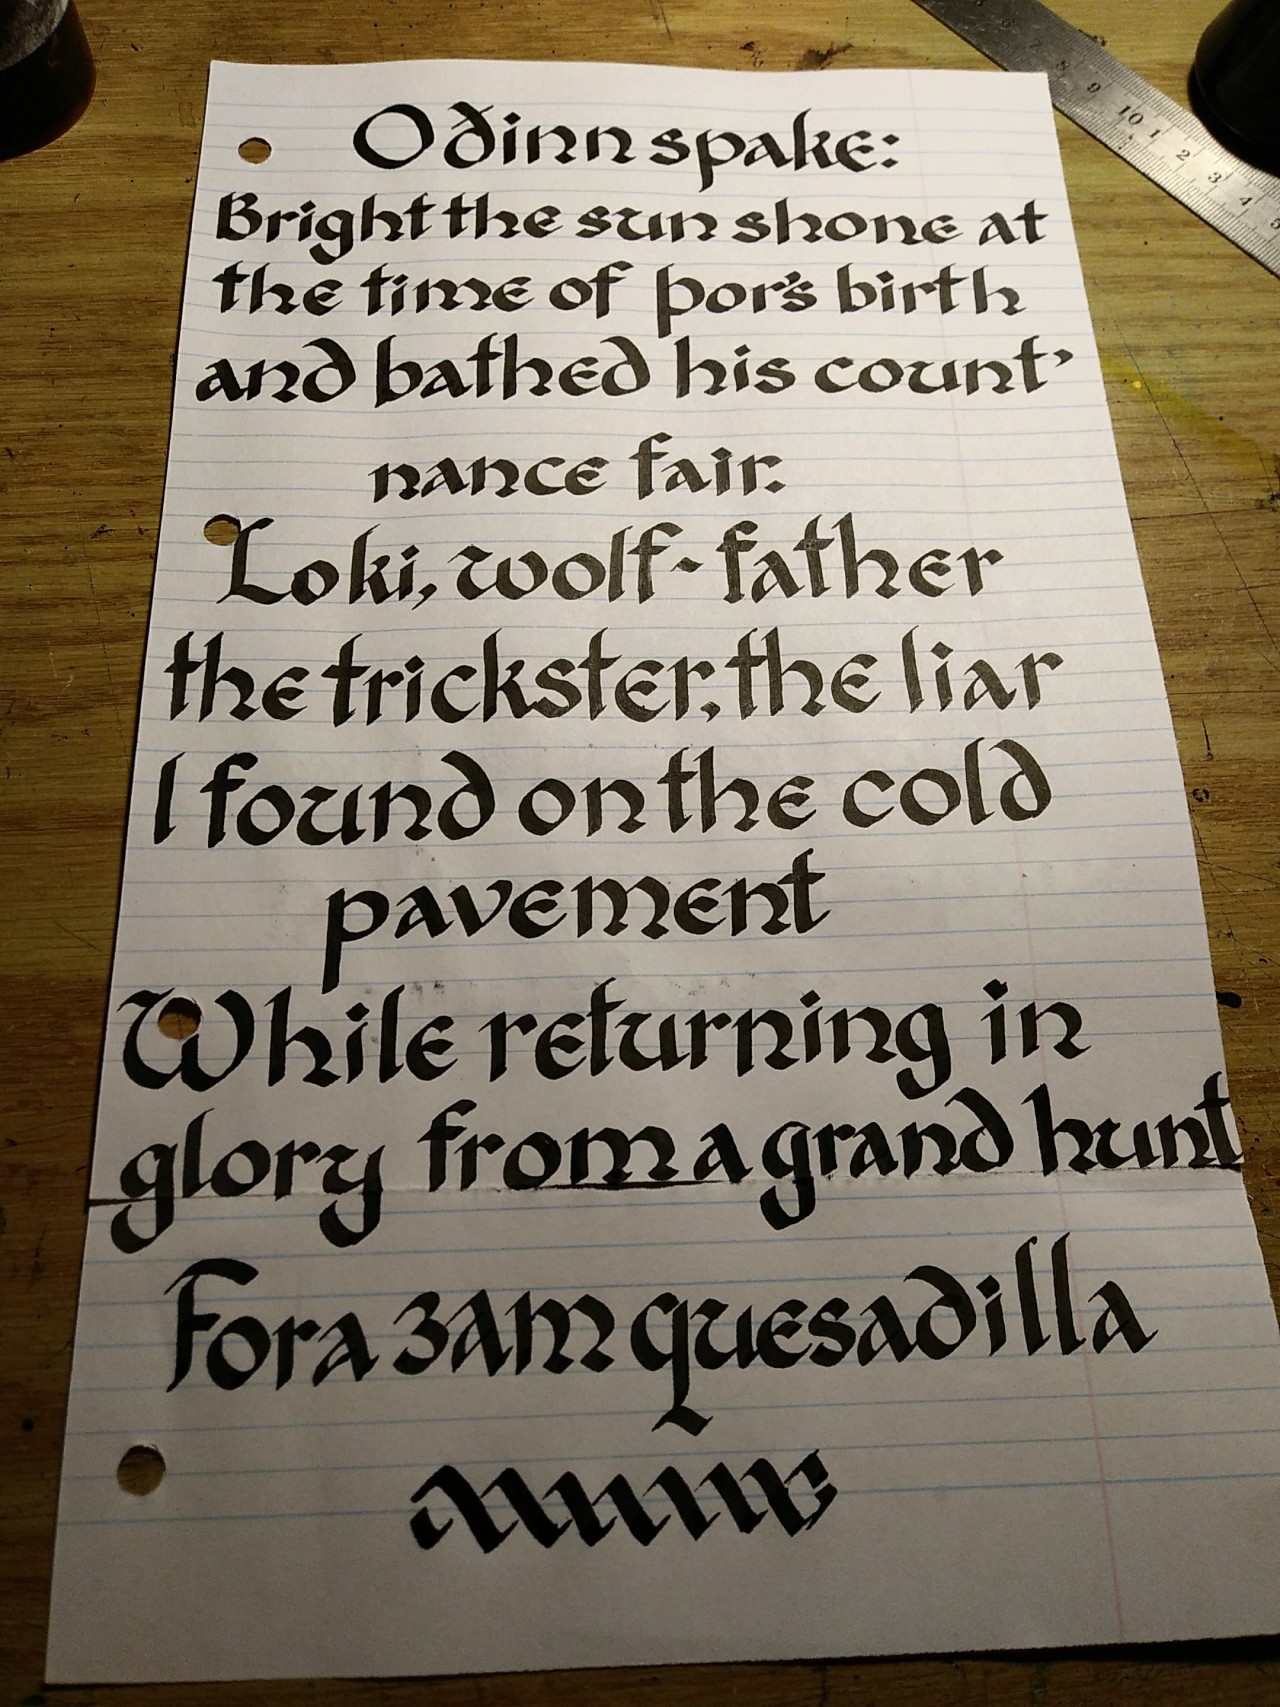 Oðinn spake:
Bright the sun shone at
the time of þor's birth
and bathed his count'
nance fair.
Loki, wolf-father
the trickster, the liar
I found on the cold
pavement
While returning in
glory from a grand hunt
For a 3AM quesadilla
8 9 10 1 2 3 4 5